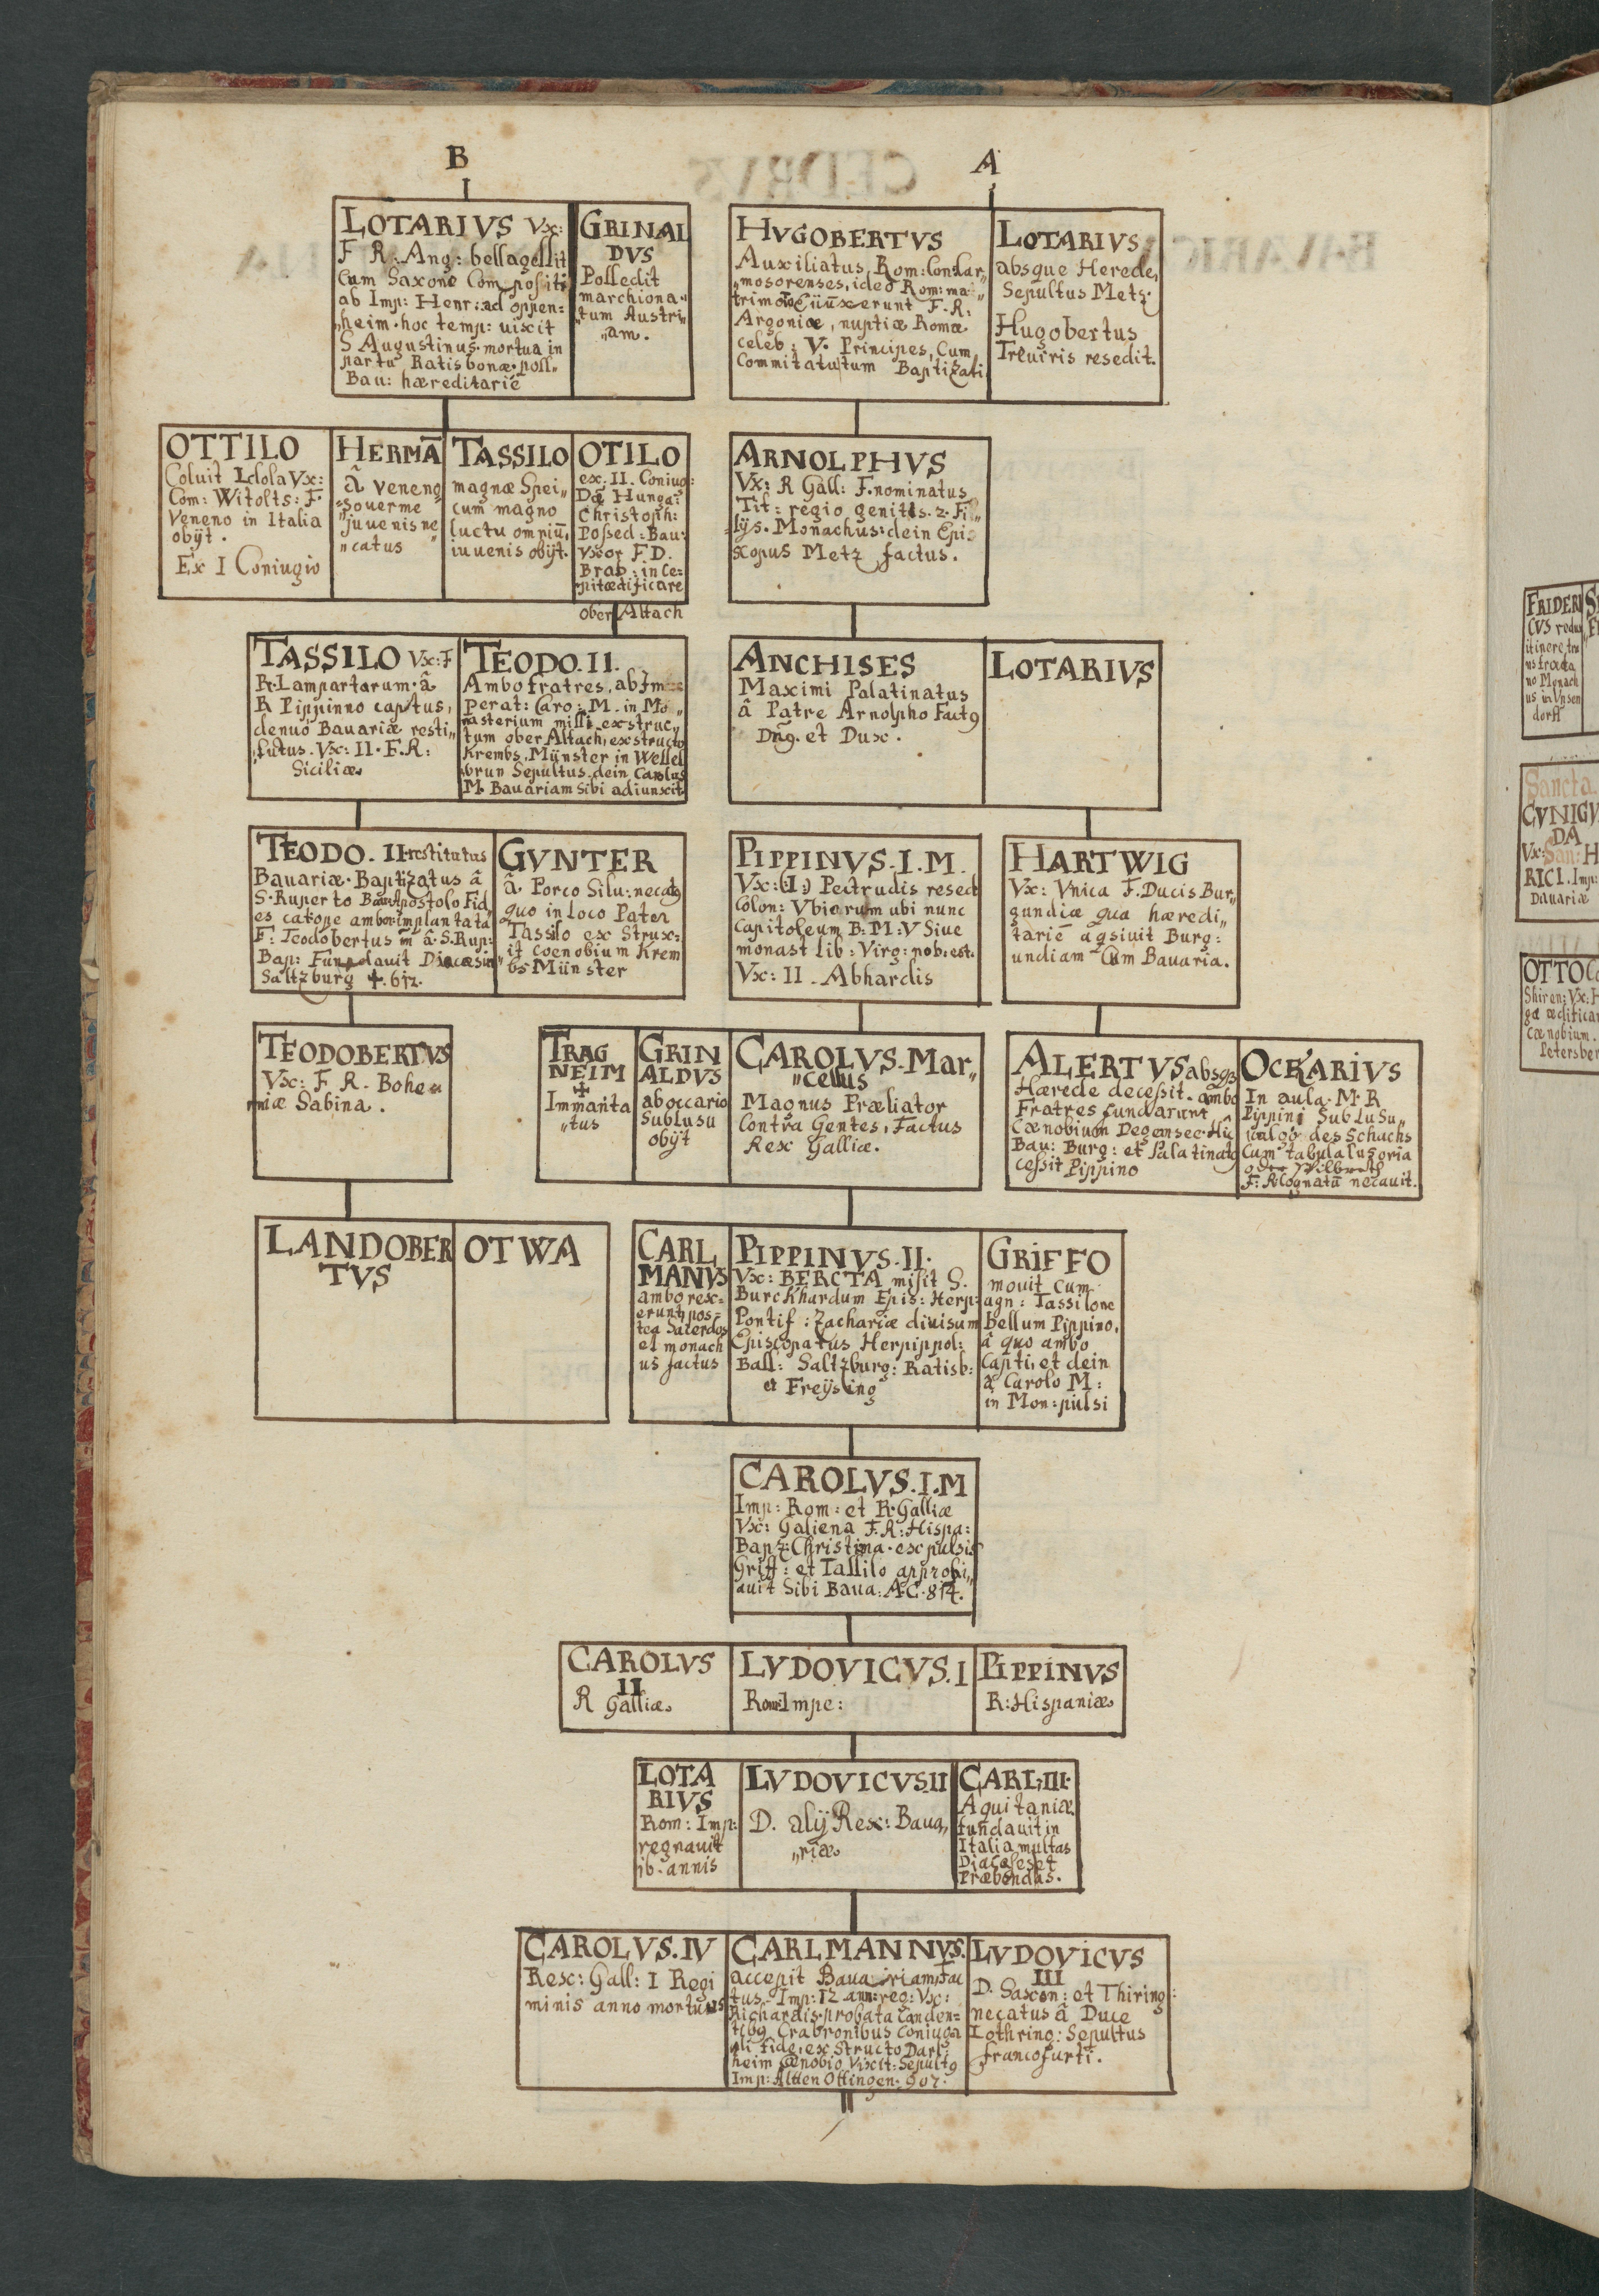 B
A
LOTARIVS Vx:
F R: Ang: bellagessit
Cum Saxone Compositi
ab Imp: Henr: ad oppen=
„heim. hoc temp: uixit
S Augustinus. mortua in
partu Ratisbonæ. poss„
Bau: hæreditariè
GRINAL
DVS
Possedit
marchiona„
„tum Austri„
„am.
HVGOBERTVS
Auxiliatus Rom: Con:
„mosorenses, ideo Rom: ma„
erunt F. R:
Argoniæ, nuptiæ Romæ
celeb: V. Principes, Cum
Commitatu tum Baptizati
LOTARIVS
absque Herede,
Sepultus Metz.
Hugobertus
Treuiris resedit.
OTTILO
Coluit Idola Vx:
Com: Witolts: F.
Veneno in Italia
obijt.
Ex I Coniugio
HERMĀ
â veneno
juuenis ne
„catus
TASSILO
magnæ Spei„
cum magno
luctu omniū,
iuuenis obijt.
OTILO
ex. II. Coniug:
Hunga:
Christoph:
Possed: Bau:
Vxor F. D.
Brab: in Ce=
pit ædificare
ober Altach
ARNOLPHVS
Vx: R Gall: F. nominatus
Tit: regio genitis. 2. Fi„
lijs. Monachus: dein Epi=
scopus Metz factus.
TASSILO Vx: F
R. Lampartarum. â
R Pippinno captus,
denuo Bauariæ resti„
„tutus. Vx: II. F. R:
Siciliæ
TEODO. II.
Ambo fratres, ab Im=
perat: Caro: M. in Mo„
nasterium missi exstruc„
tum ober Altach, exstructo
Krembs. Münster in Wessel
brun Sepultus. dein Carolus
M. Bauariam sibi adiunxit
ANCHISES
Maximi Palatinatus
â Patre Arnolpho Fact9
Dn̄9. et Dux.
LOTARIVS
TEODO. II restitutus
Bauariæ. Baptizatus â
S. Ruperto Bau: Apostolo Fid
es implantata
F: Teodobertus â S. Rup:
Bap: Fundauit Diæcesin
Saltzburg ✝. 612.
GVNTER
â Porco Silu: necat9
quo in loco Pater
Tassilo ex Strux:
it coenobium Krem
bs Münster
PIPPINVS. I. M.
Vx: (I:) Pectrudis resedt
Colon: Vbiorum ubi nunc
Capitoleum B: M: V Siue
monast lib: Virg: nob: est.
Vx: II. Abhardis
HARTWIG
Vx: Vnica F. Ducis Bur„
gundiæ qua hæredi„
tarie aqsiuit Burg:
undiam Cum Bauaria.
TEODOBERTVS
Vx: F R. Bohe„
miæ Sabina.
TRAG
NEIM
✝
Immanta
„tus
GRIN
ALDVS
ab occario
Sub lusu
obijt
CAROLVS. Mar„
„cellus
Magnus Præliator
Contra Gentes, Factus
Rex Galliæ.
ALERTVS absq3
Hærede decessit. ambo
Fratres fundarunt
Cænobium Degernsee. Hîc
Bau: Burg: et Palatinat9
cessit Pippino
OCKARIVS
In aula. M. R
Pippini Sub Lusu„
des Schachs
Cum tabula lusoria
F: R: Cognatū necauit.
LANDOBER
TVS
OTWA
CARL
MANVS
ambo rex=
erunt, pos=
tea Sacerdos
et monach
us factus
PIPPINVS. II.
Vx: BERCTA misit S.
Burckhardum Epis: Herp:
Pontif: Zachariæ diuisum
Episcopatus Herpippol:
Bass: Saltzburg: Ratisb:
et Freijsing
GRIFFO
mouit cum
agn: Tassilone
Bellum Pippino,
â quo ambo
Capti, et dein
â Carolo M:
in Mon: pulsi
CAROLVS. I. M
Imp: Rom: et R. Galliæ
Vx: Galiena F. R: Hispa:
Bapz: Christina. expulsis
Griff: et Tassilo appropi„
auit Sibi Baua: A. C. 814.
CAROLVS
II
R Galliæ
LVDOVICVS. I
Rom: Impe:
PIPPINVS
R: Hispaniæ
LOTA
RIVS
Rom: Imp:
regnauit
16. annis
LVDOVICVS II
D. alij Rex: Baua„
„riæ
CARL: III.
Aquitaniæ
fundauit in
Italia multas
Diæceses et
Præbendas.
CAROLVS. IV
Rex: Gall: I Regi
minis anno mortuus
CARLMANNVS.
accepit Bauariam, Fac
tus Imp: 12 ann: reg: Vx:
Richardis. probata Canden=
tib9 Crabronibus coniuga
li fide, ex Structo Darl
heim cænobio Vixit: Sepult9
Imp: Altten Ottingen. 907.
LVDOVICVS
III
D. Saxon: et Thiring:
necatus â Duce
Lothring: Sepultus
francofurti.
FRIDERI
CVS
itinere
us
no Monach
us in Vnsen
dorff
Sancta
CVNIGV
DA
Vx: San: H
RICI. Imp:
Bauariæ
OTTO
Shiren: Vx: H
ædifica
Cænobium.
Petersber